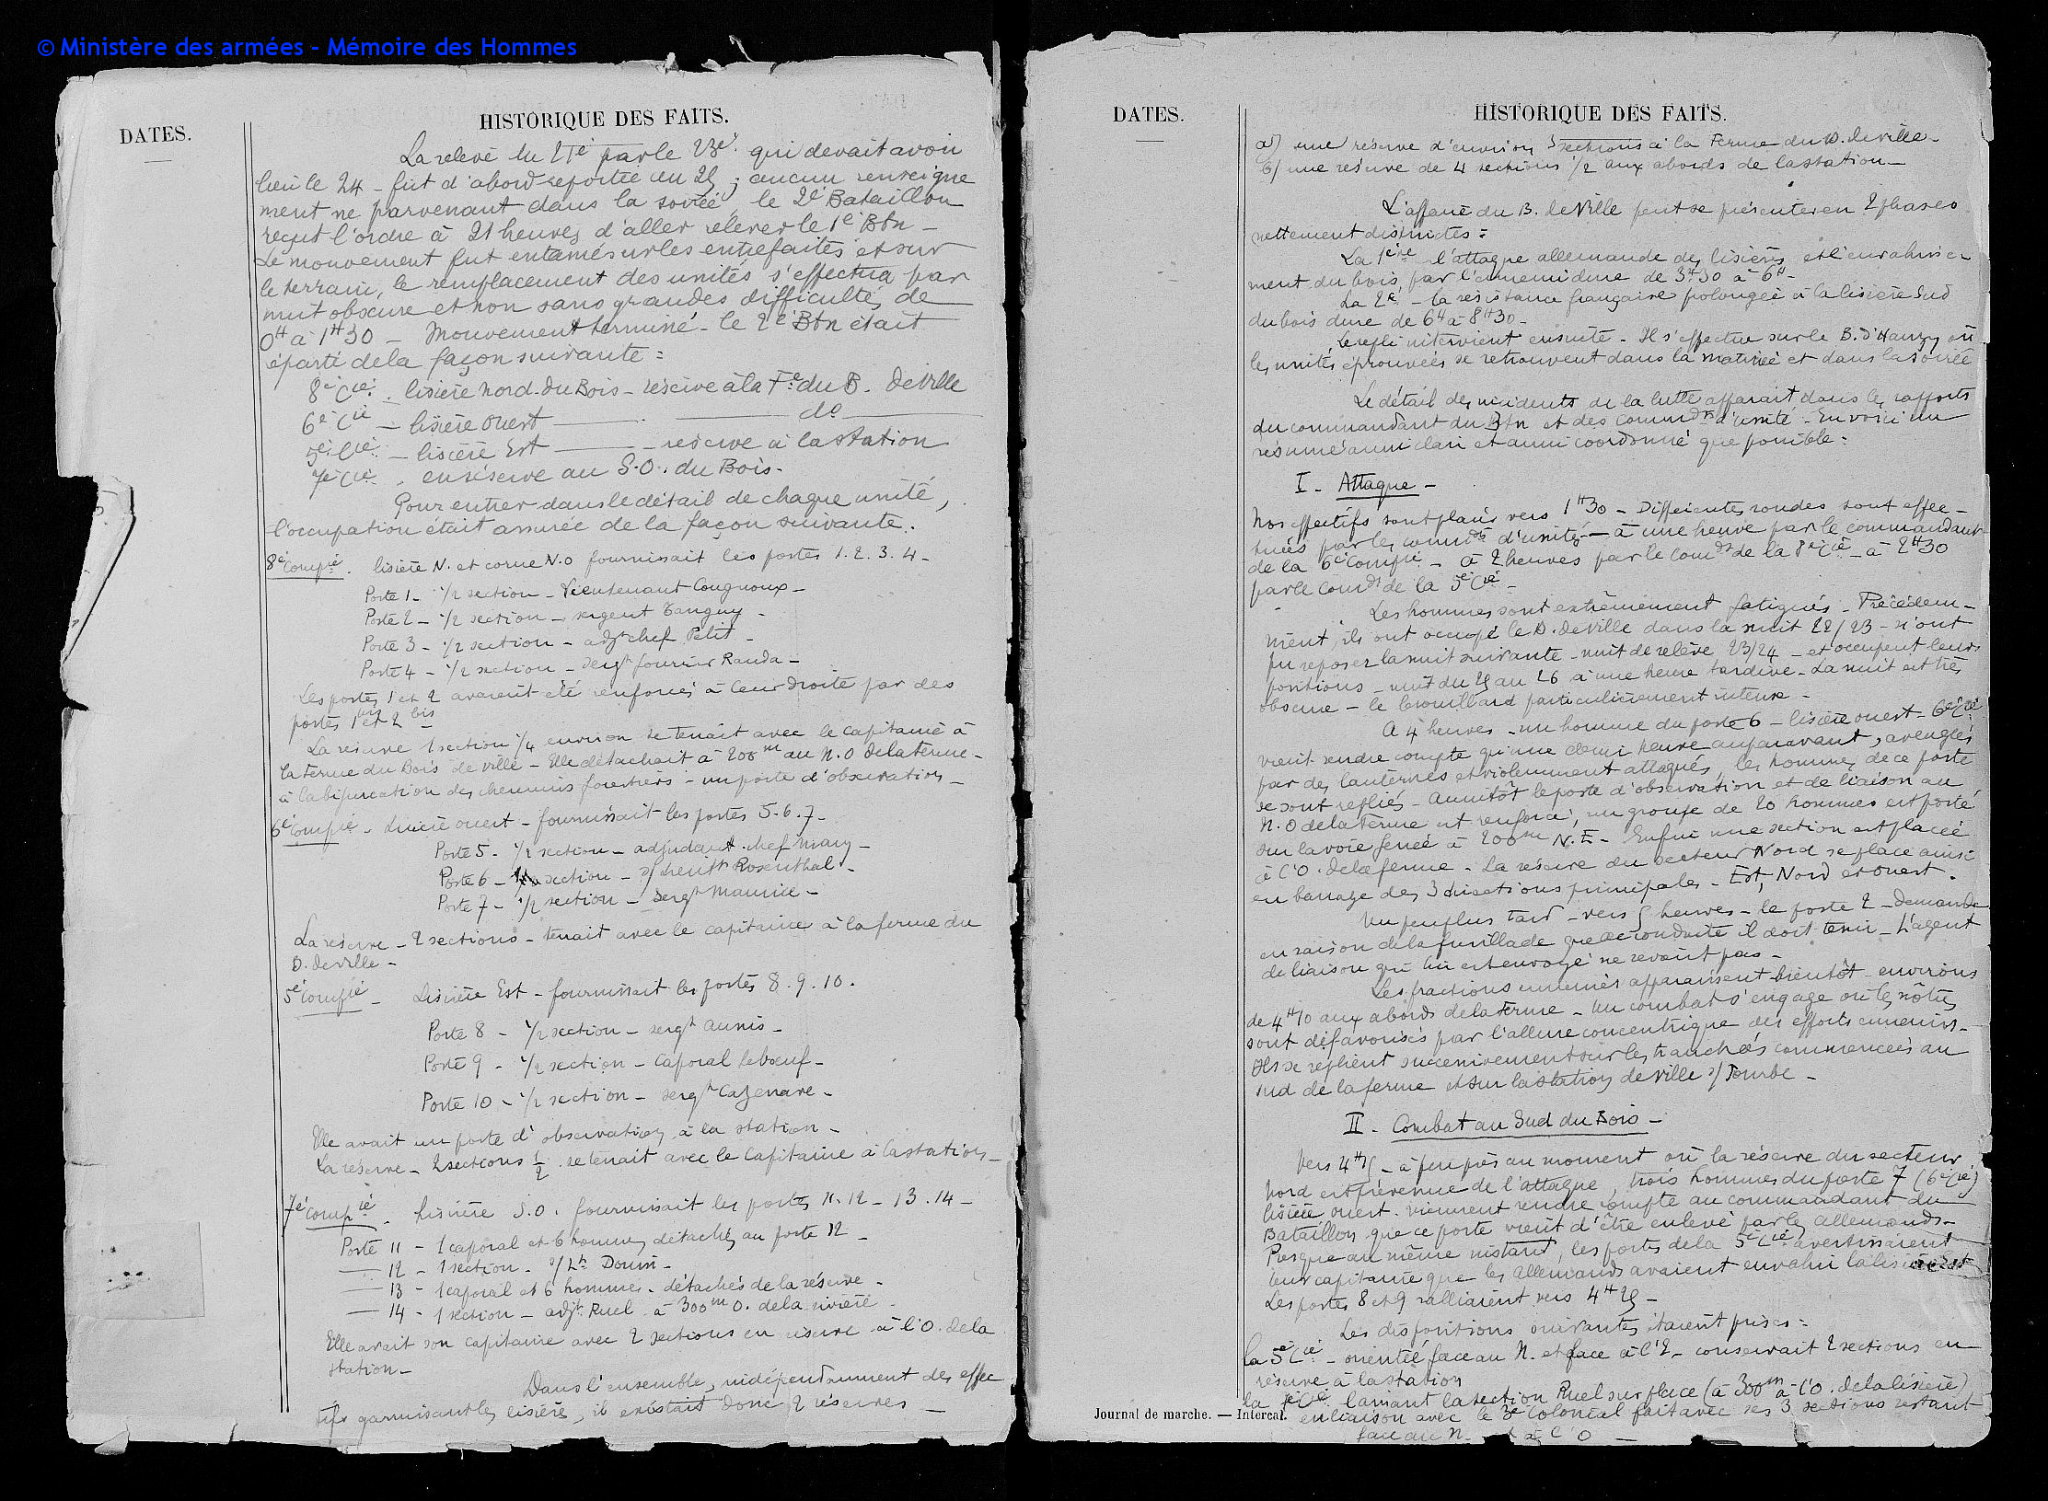 © Ministère des armées - Mémoire des Hommes
DATES.
HISTORIQUE DES FAITS.
La relève du 21e par le 23e qui devait avoir
lieu le 24 - fut d'abord reportée au 25 ; aucun renseigne
ment ne parvenant dans la soirée, le 2e Bataillon
reçut l'ordre à 21 heures d'aller relever le 1e Btn -
Le mouvement fut entamé sur les entrefaites et sur
le terrain, le remplacement des unités s'effectua par
nuit obscure et non sans grandes difficultés, de
0H à 1H30 - Mouvement terminé - le 2e Btn était
réparti de la façon suivante :
8e Cie - lisière Nord du Bois - réserve à la Fe du B. de Ville
6e Cie - lisière Ouest - do
5e Cie - lisière Est - réserve à la station
7e Cie - en réserve au S.O. du Bois -
Pour entrer dans le détail de chaque unité,
l'occupation était assurée de la façon suivante :
8e Compie - lisière N. et corne N.O fournissait les postes 1. 2. 3. 4 -
Poste 1 - 1/2 section - Lieutenant Cougnoux -
Poste 2 - 1/2 section - sergent Tanguy -
Poste 3 - 1/2 section - adjt chef Petit -
Poste 4 - 1/2 section - sergt fourrier Randa -
Les postes 1 et 2 avaient été renforcés à leur droite par des
postes 1bis et 2bis
La réserve 1 section 1/4 environ se tenait avec le capitaine à
la ferme du Bois de Ville - Elle détachait à 200m au N.O de la ferme -
à la bifurcation des chemins forestiers - un poste d'observation -
6e Compie - Lisière ouest - fournissait les postes 5. 6. 7 -
Poste 5 - 1/2 section - adjudant chef Mary -
Poste 6 - section - s/lieutt Rosenthal -
Poste 7 - 1/2 section - sergt Maurice -
La réserve - 2 sections - tenait avec le capitaine à la ferme du
B. de Ville -
5e Compie - Lisière Est - fournissait les postes 8. 9. 10.
Poste 8 - 1/2 section - sergt Aunis -
Poste 9 - 1/2 section - caporal Leboeuf -
Poste 10 - 1/2 section - sergt Cazenave -
Elle avait un poste d'observation à la station -
La réserve - 2 sections 1/2 se tenait avec le capitaine à la station -
7e Compie - Lisière S.O. fournissait les postes 11. 12 - 13. 14 -
Poste 11 - 1 caporal et 6 hommes détachés au poste 12 -
- 12 - 1 section - s/Lt Douin -
- 13 - 1 caporal et 6 hommes - détachés de la réserve -
- 14 - 1 section - adjt Ruel - à 300m O. de la rivière -
Elle avait son capitaine avec 2 sections en réserve à l'O. de la
station -
Dans l'ensemble, indépendamment des effec
tifs garnissant les lisières, il existait donc 2 réserves -
DATES.
HISTORIQUE DES FAITS.
a) une réserve d'environ 3 sections à la Ferme du B. de Ville -
b) une réserve de 4 sections 1/2 aux abords de la station -
L'affaire du B. de Ville peut se présenter en 2 phases
nettement distinctes :
La 1ère - l'attaque allemande des lisières et l'envahisse-
ment du bois, par l'ennemi dure de 3H30 à 6H -
La 2e - la résistance française prolongée à la lisière Sud
du bois dure de 6H à 8H30 -
Le repli intervient ensuite - Il s'effectue sur le B. d'Hauzy où
les unités éprouvées se retrouvent dans la matinée et dans la soirée
Le détail des incidents de la lutte apparaît dans les rapports
du commandant du Btn et des commdts d'unité - En voici un
résumé aussi clair et aussi coordonné que possible :
I - Attaque -
Nos effectifs sont placés vers 1H30 - Différentes rondes sont effec-
tuées par les commdts d'unités - à une heure par le commandant
de la 6e Compie - à 2 heures par le Comdt de la 8e Cie - à 2H30
par le Comdt de la 5e Cie -
Les hommes sont extrêmement fatigués - Précédem-
ment, ils ont occupé le B. de Ville dans la nuit 22/23 - n'ont
pu reposer la nuit suivante - nuit de relève 23/24 - et occupent leurs
positions - nuit du 25 au 26 à une heure tardive - La nuit est très
obscure - le brouillard particulièrement intense -
A 4 heures - un homme du poste 6 - lisière ouest - 6e Cie
vient rendre compte qu'une demi heure auparavant, aveuglés
par des lanternes et violemment attaqués, les hommes de ce poste
se sont repliés - Aussitôt le poste d'observation et de liaison au
N.O de la Ferme est renforcé, un groupe de 20 hommes est porté
sur la voie ferrée à 200m N.E - Enfin une section est placée
à l'O. de la ferme - La réserve du secteur Nord se place ainsi
en barrage des 3 directions principales - Est, Nord et Ouest -
Un peu plus tard - vers 5 heures - le poste 2 - demande
en raison de la fusillade quelle conduite il doit tenir - L'agent
de liaison qui lui est envoyé ne revient pas -
Les fractions ennemies apparaissent bientôt - environs
de 4H10 aux abords de la ferme - Un combat s'engage où les nôtres
sont défavorisés par l'allure concentrique des efforts ennemis -
Ils se replient successivement sur les tranchées commencées au
sud de la ferme et sur la station de Ville s/Tourbe -
II - Combat au Sud du Bois -
Vers 4H15 - à peu près au moment où la réserve du secteur
Nord est prévenue de l'attaque, trois hommes du poste 7 (6e Cie)
lisière ouest - viennent rendre compte au commandant du
Bataillon que ce poste vient d'être enlevé par les allemands -
Presque au même instant, les postes de la 5e Cie avertissaient
leur capitaine que les Allemands avaient envahi la lisière est
Les postes 8 et 9 ralliaient vers 4H25 -
Les dispositions suivantes étaient prises :
La 5e Cie - orientée face au N. et face à l'E - conservait 2 sections en
réserve à la station
La 7e Cie laissant la section Ruel sur place (à 300m à l'O. de la lisière)
en liaison avec le 3e Colonial fait avec ses 3 sections restant
face au N. et à l'O -
Journal de marche. — Intercal.